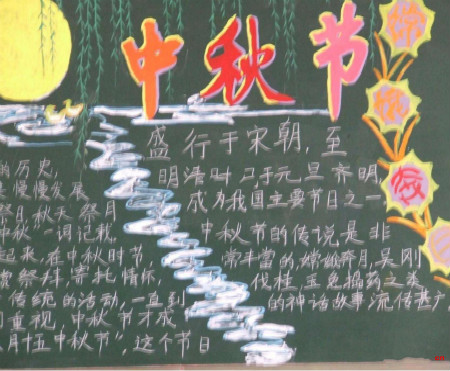 中秋节
的历史,
是慢慢发展
祭日,秋天祭月
中秋"一词记载,
起来,在中秋时节,
赏祭拜,寄托情怀,
传统的活动,一直到
重视,中秋节才成
月十五中秋节",这个节日
盛行于宋朝,至
明清时,与元旦齐明,
成为我国主要节日之一
中秋节的传说是非
常丰富的,嫦娥奔月,吴刚
伐桂,玉兔捣药之类
的神话故事流传甚广,